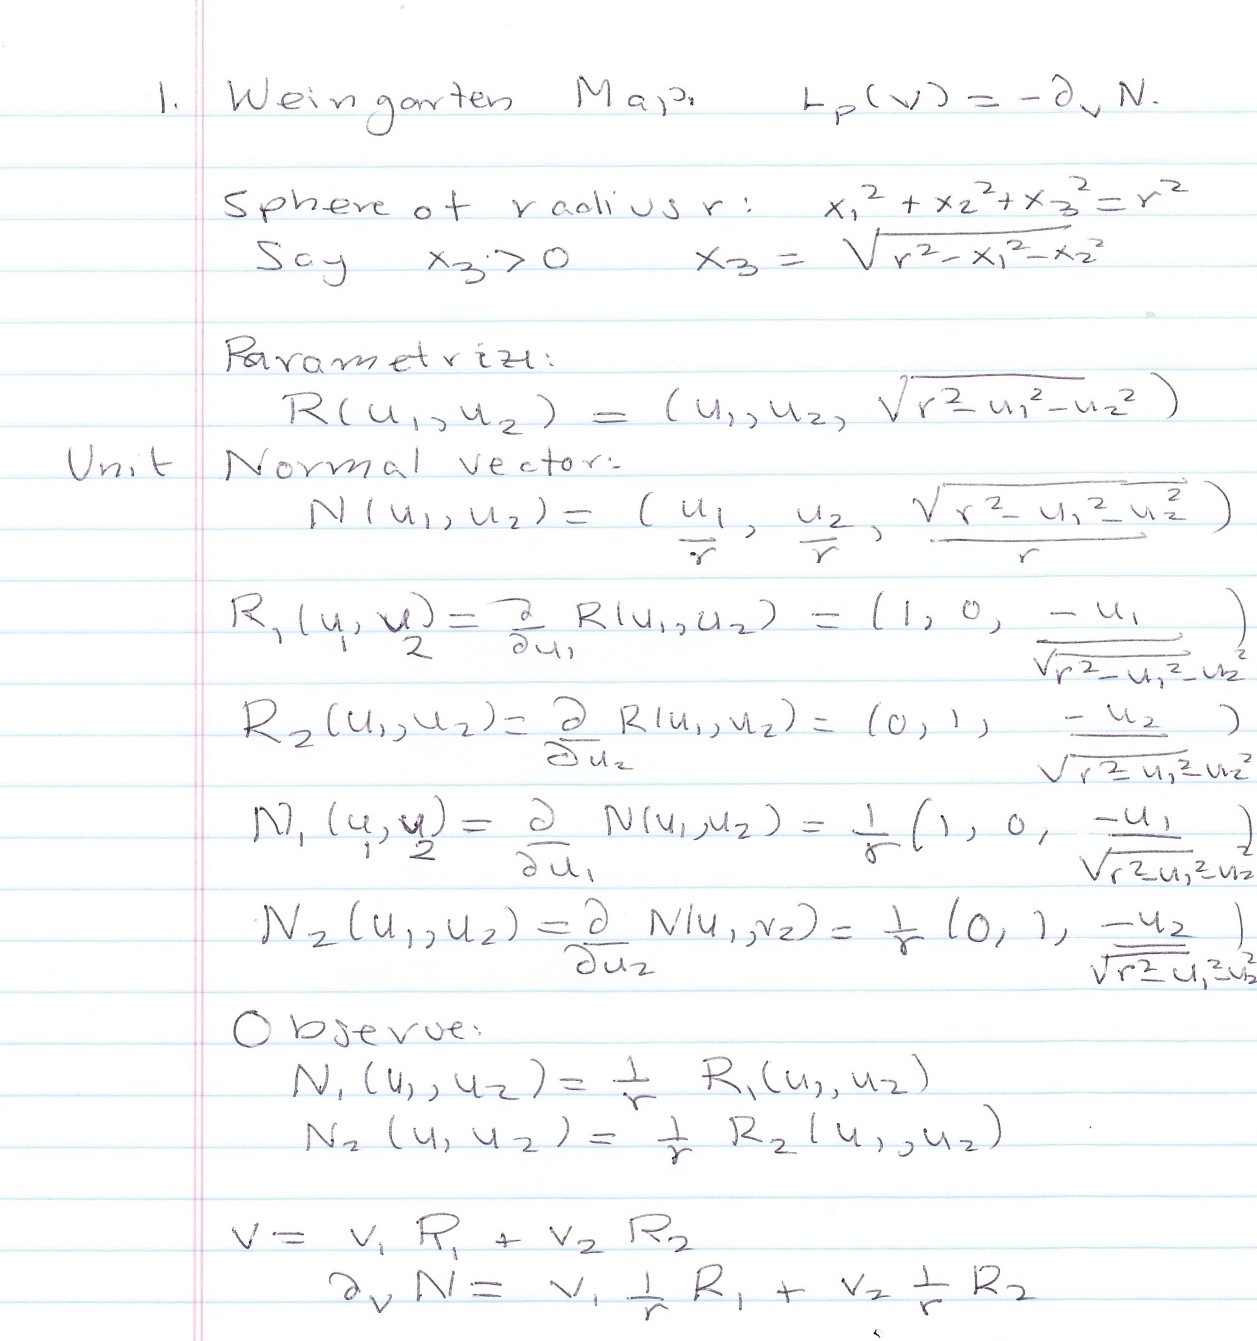 1. Weingarten Map. L_p(v) = -∂_v N.
Sphere of radius r: x₁² + x₂² + x₃² = r²
Say x₃ > 0 x₃ = √(r² - x₁² - x₂²)
Parametrize:
R(u₁, u₂) = (u₁, u₂, √(r² - u₁² - u₂²))
Unit Normal vector:
N(u₁, u₂) = (u₁/r, u₂/r, √(r² - u₁² - u₂²)/r)
R₁(u₁, u₂) = ∂/∂u₁ R(u₁, u₂) = (1, 0, -u₁/√(r² - u₁² - u₂²))
R₂(u₁, u₂) = ∂/∂u₂ R(u₁, u₂) = (0, 1, -u₂/√(r² - u₁² - u₂²))
N₁(u₁, u₂) = ∂/∂u₁ N(u₁, u₂) = 1/r (1, 0, -u₁/√(r² - u₁² - u₂²))
N₂(u₁, u₂) = ∂/∂u₂ N(u₁, v₂) = 1/r (0, 1, -u₂/√(r² - u₁² - u₂²))
Observe:
N₁(u₁, u₂) = 1/r R₁(u₁, u₂)
N₂(u₁ u₂) = 1/r R₂(u₁, u₂)
v = v₁ R₁ + v₂ R₂
∂_v N = v₁ 1/r R₁ + v₂ 1/r R₂